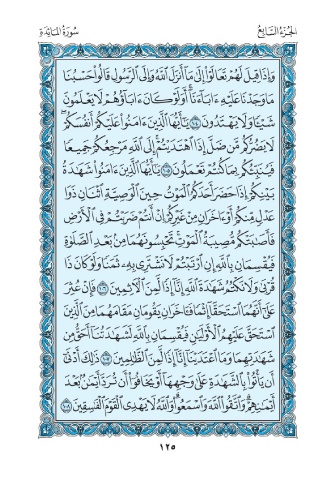 الجزء السابع
سورة المائدة
وَإِذَا قِيلَ لَهُمْ تَعَالَوْا۟ إِلَىٰ مَآ أَنزَلَ ٱللَّهُ وَإِلَى ٱلرَّسُولِ قَالُوا۟ حَسْبُنَا
مَا وَجَدْنَا عَلَيْهِ ءَابَآءَنَآ أَوَلَوْ كَانَ ءَابَآؤُهُمْ لَا يَعْلَمُونَ
شَيْـًٔا وَلَا يَهْتَدُونَ ١٠٤ يَـٰٓأَيُّهَا ٱلَّذِينَ ءَامَنُوا۟ عَلَيْكُمْ أَنفُسَكُمْ
لَا يَضُرُّكُم مَّن ضَلَّ إِذَا ٱهْتَدَيْتُمْ إِلَى ٱللَّهِ مَرْجِعُكُمْ جَمِيعًا
فَيُنَبِّئُكُم بِمَا كُنتُمْ تَعْمَلُونَ ١٠٥ يَـٰٓأَيُّهَا ٱلَّذِينَ ءَامَنُوا۟ شَهَـٰدَةُ
بَيْنِكُمْ إِذَا حَضَرَ أَحَدَكُمُ ٱلْمَوْتُ حِينَ ٱلْوَصِيَّةِ ٱثْنَانِ ذَوَا
عَدْلٍ مِّنكُمْ أَوْ ءَاخَرَانِ مِنْ غَيْرِكُمْ إِنْ أَنتُمْ ضَرَبْتُمْ فِى ٱلْأَرْضِ
فَأَصَـٰبَتْكُم مُّصِيبَةُ ٱلْمَوْتِ تَحْبِسُونَهُمَا مِنۢ بَعْدِ ٱلصَّلَوٰةِ
فَيُقْسِمَانِ بِٱللَّهِ إِنِ ٱرْتَبْتُمْ لَا نَشْتَرِى بِهِۦ ثَمَنًا وَلَوْ كَانَ ذَا
قُرْبَىٰ وَلَا نَكْتُمُ شَهَـٰدَةَ ٱللَّهِ إِنَّآ إِذًا لَّمِنَ ٱلْـَٔاثِمِينَ ١٠٦ فَإِنْ عُثِرَ
عَلَىٰٓ أَنَّهُمَا ٱسْتَحَقَّآ إِثْمًا فَـَٔاخَرَانِ يَقُومَانِ مَقَامَهُمَا مِنَ ٱلَّذِينَ
ٱسْتَحَقَّ عَلَيْهِمُ ٱلْأَوْلَيَـٰنِ فَيُقْسِمَانِ بِٱللَّهِ لَشَهَـٰدَتُنَآ أَحَقُّ مِن
شَهَـٰدَتِهِمَا وَمَا ٱعْتَدَيْنَآ إِنَّآ إِذًا لَّمِنَ ٱلظَّـٰلِمِينَ ١٠٧ ذَٰلِكَ أَدْنَىٰٓ
أَن يَأْتُوا۟ بِٱلشَّهَـٰدَةِ عَلَىٰ وَجْهِهَآ أَوْ يَخَافُوٓا۟ أَن تُرَدَّ أَيْمَـٰنٌۢ بَعْدَ
أَيْمَـٰنِهِمْ وَٱتَّقُوا۟ ٱللَّهَ وَٱسْمَعُوا۟ وَٱللَّهُ لَا يَهْدِى ٱلْقَوْمَ ٱلْفَـٰسِقِينَ ١٠٨
١٢٥